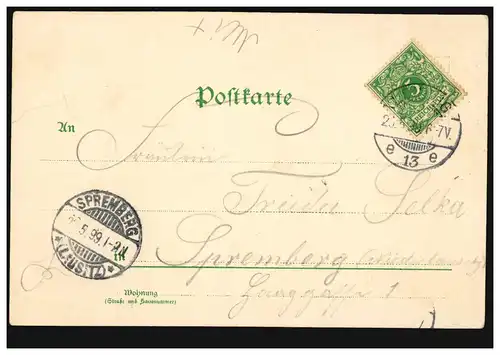 Postkarte
5
An
Fräulein
Frida Selka
SPREMBERG
5.99.1-2N
*(LAUSITZ)*
in
Spremberg (Niederlausitz)
Wohnung
(Straße und Hausnummer)
Langgasse 1
6-7V.
e 13 e